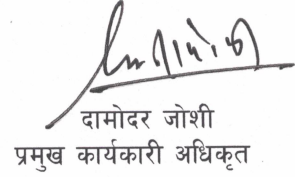 दामोदर जोशी
प्रमुख कार्यकारी अधिकृत